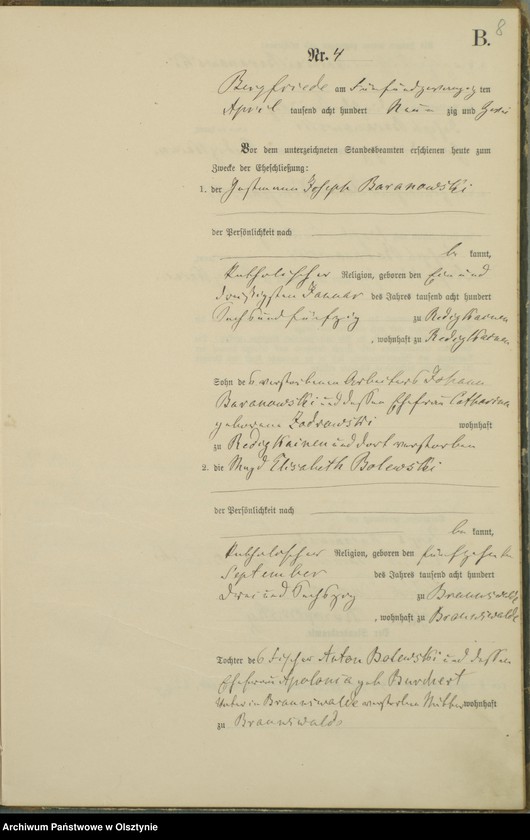 B. 8
Nr. 4
Bergfriede am Fünfundzwanzig ten
April tausend acht hundert Neun zig und
Vor dem unterzeichneten Standesbeamten erschienen heute zum
Zwecke der Eheschließung:
1. der Joseph Baranowski
der Persönlichkeit nach
be kannt,
katholischer Religion, geboren den Ein und
dreißigsten Januar des Jahres tausend acht hundert
Sechsundfünfzig zu Redigkainen
, wohnhaft zu Redigkainen
Sohn des verstorbenen Arbeiters Johann
Baranowski und dessen Ehefrau Catharina
geborene wohnhaft
zu Redigkainen und dort verstorben
2. die Magd Elisabeth Bolewski
der Persönlichkeit nach
be kannt,
katholischer Religion, geboren den fünfzehnten
September des Jahres tausend acht hundert
Drei und Sechszig zu Braunswalde
, wohnhaft zu Braunswalde
Tochter des Fischer Anton Bolewski und dessen
Ehefrau Apolonia geb Burchert
in Braunswalde verstorben wohnhaft
zu Braunswalde
Archiwum Państwowe w Olsztynie